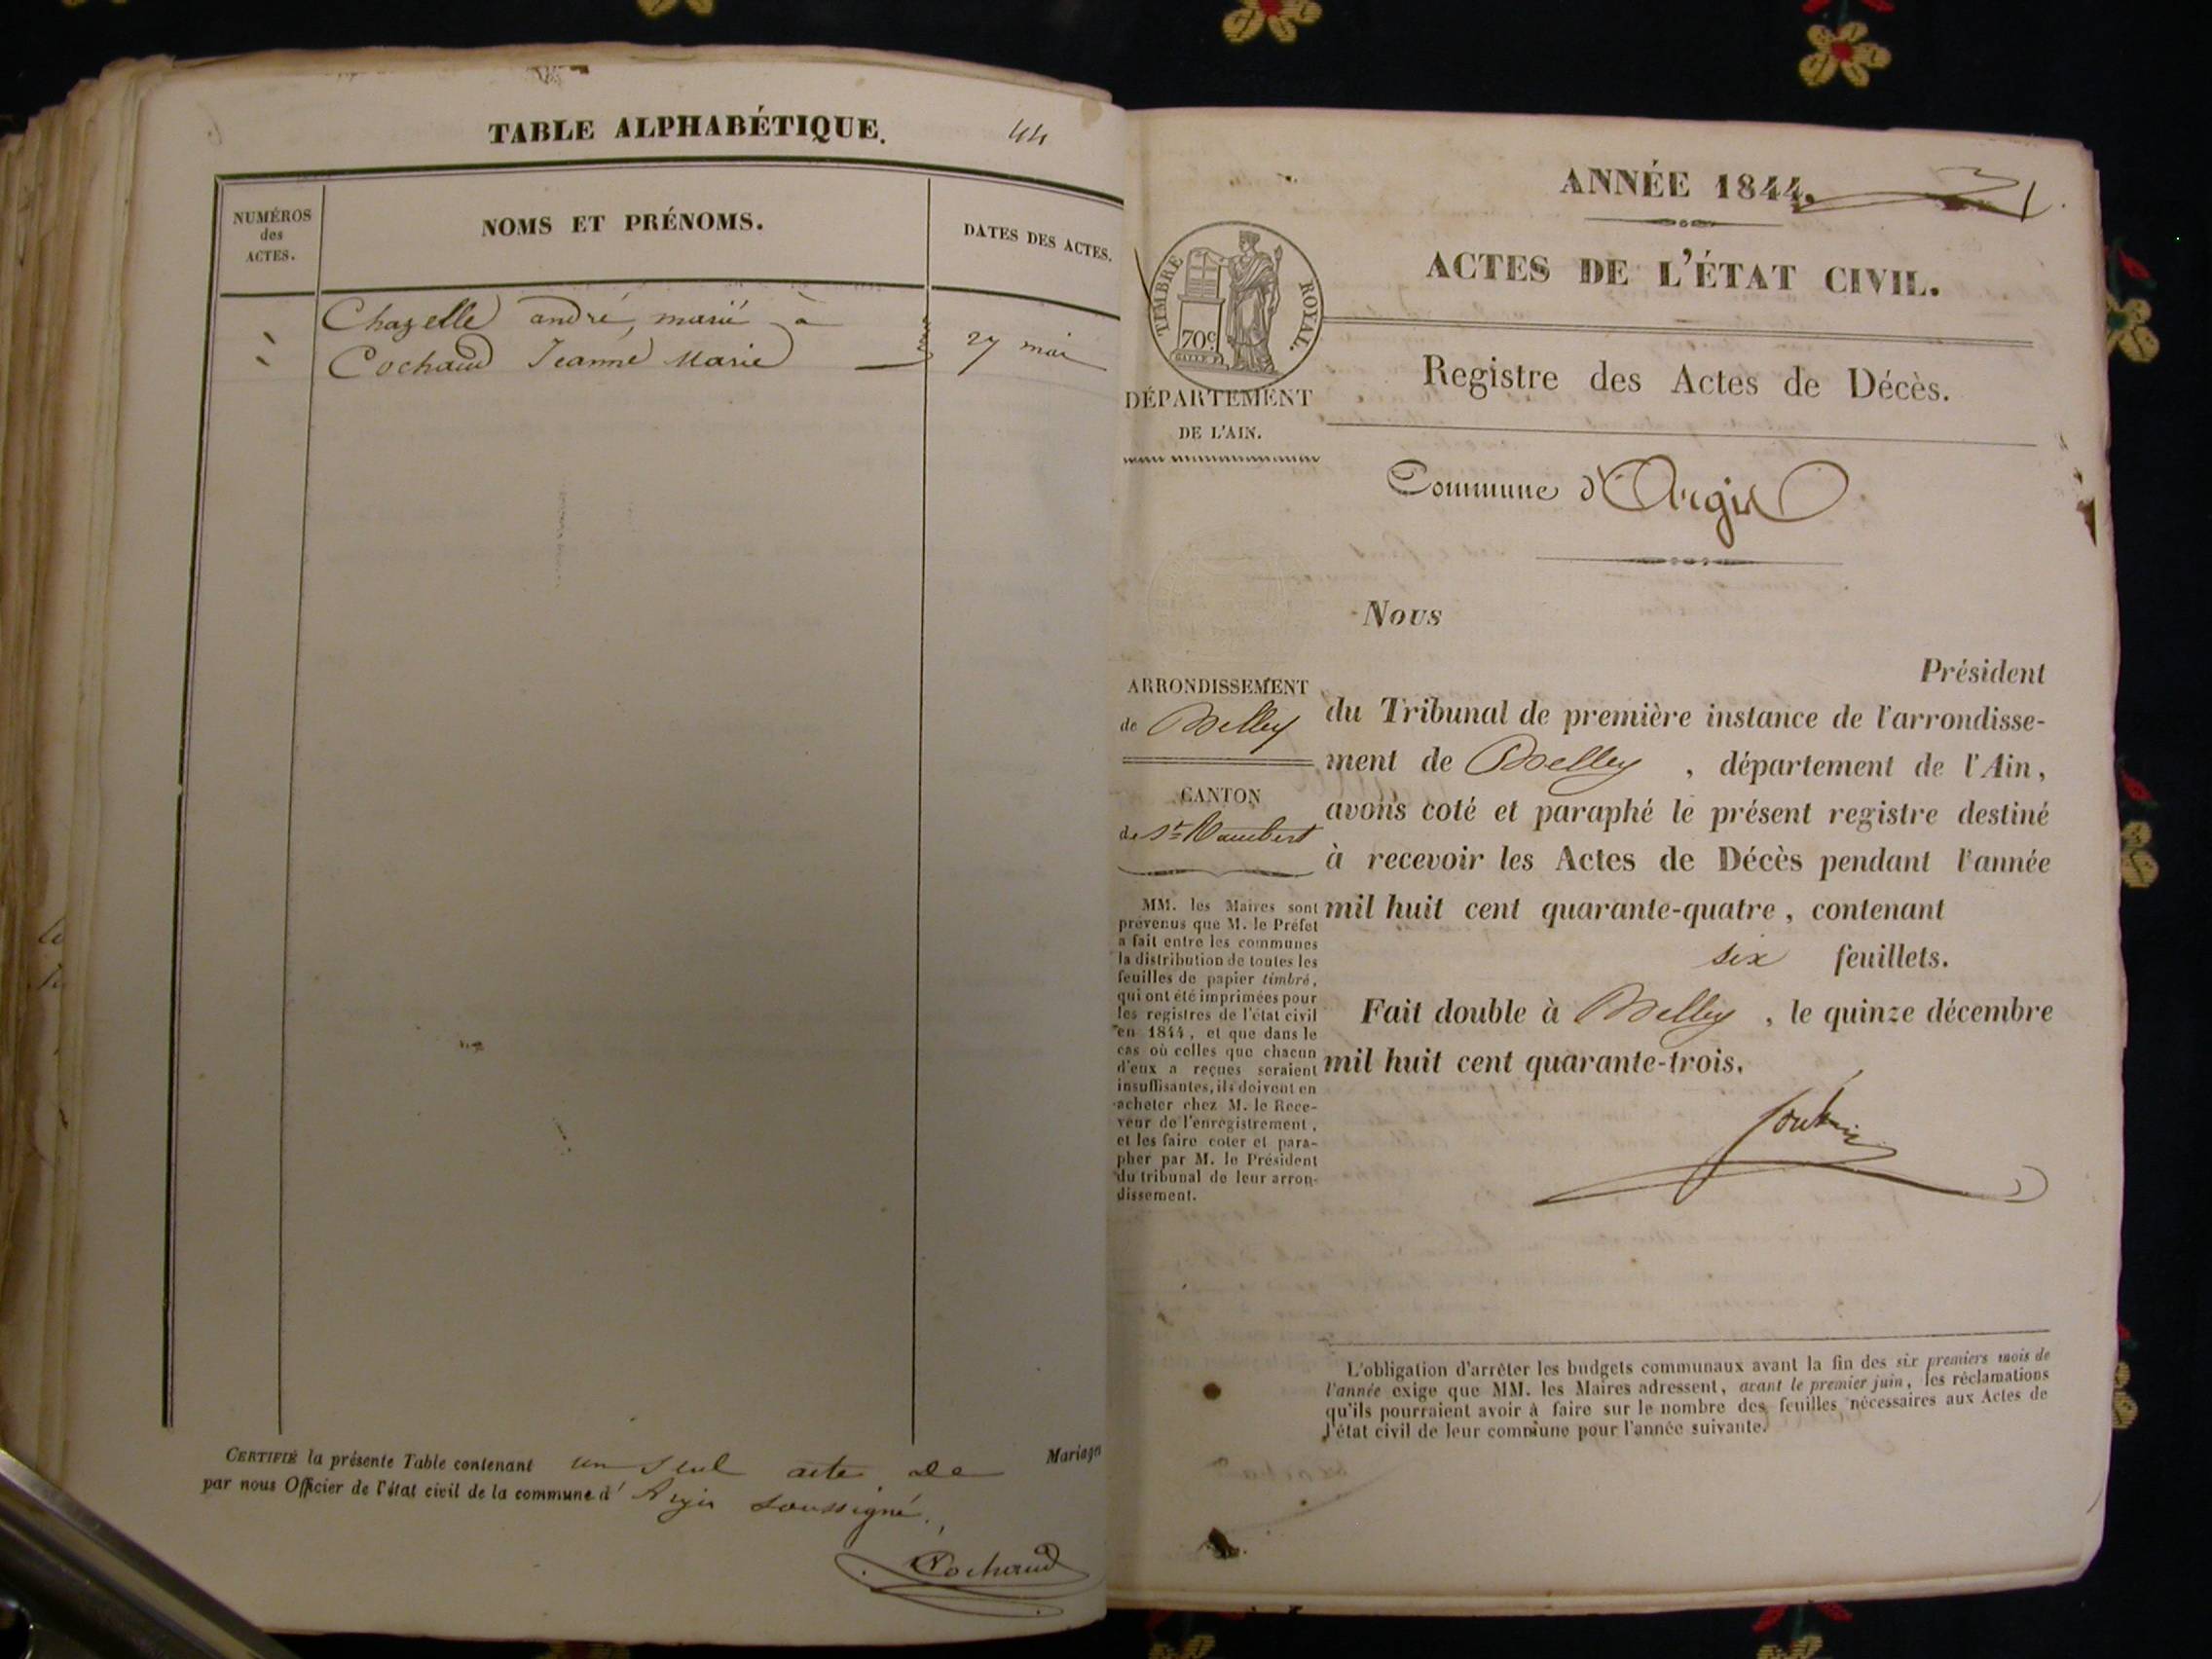 TABLE ALPHABÉTIQUE.
44
NUMÉROS
des
ACTES.
NOMS ET PRÉNOMS.
DATES DES ACTES.
Chazelle andré, marié à
Cochaud Jeanne Marie
27 mai
CERTIFIÉ la présente Table contenant un seul acte de Mariages
par nous Officier de l'état civil de la commune d' Argis soussigné.
Cochaud
ANNÉE 1844.
1
ACTES DE L'ÉTAT CIVIL.
TIMBRE ROYAL.
70c
DÉPARTEMENT
DE L'AIN.
Registre des Actes de Décès.
Commune d'Argis
Nous
Président
du Tribunal de première instance de l'arrondisse-
ment de Belley, département de l'Ain,
avons coté et paraphé le présent registre destiné
à recevoir les Actes de Décès pendant l'année
mil huit cent quarante-quatre, contenant
six feuillets.
Fait double à Belley, le quinze décembre
mil huit cent quarante-trois.
ARRONDISSEMENT
de Belley
CANTON
de St Rambert
MM. les Maires sont
prévenus que M. le Préfet
a fait entre les communes
la distribution de toutes les
feuilles de papier timbré,
qui ont été imprimées pour
les registres de l'état civil
en 1844, et que dans le
cas où celles que chacun
d'eux a reçues seraient
insuffisantes, ils doivent en
acheter chez M. le Rece-
veur de l'enregistrement,
et les faire coter et para-
pher par M. le Président
du tribunal de leur arron-
dissement.
L'obligation d'arrêter les budgets communaux avant la fin des six premiers mois de
l'année exige que MM. les Maires adressent, avant le premier juin, les réclamations
qu'ils pourraient avoir à faire sur le nombre des feuilles nécessaires aux Actes de
l'état civil de leur commune pour l'année suivante.